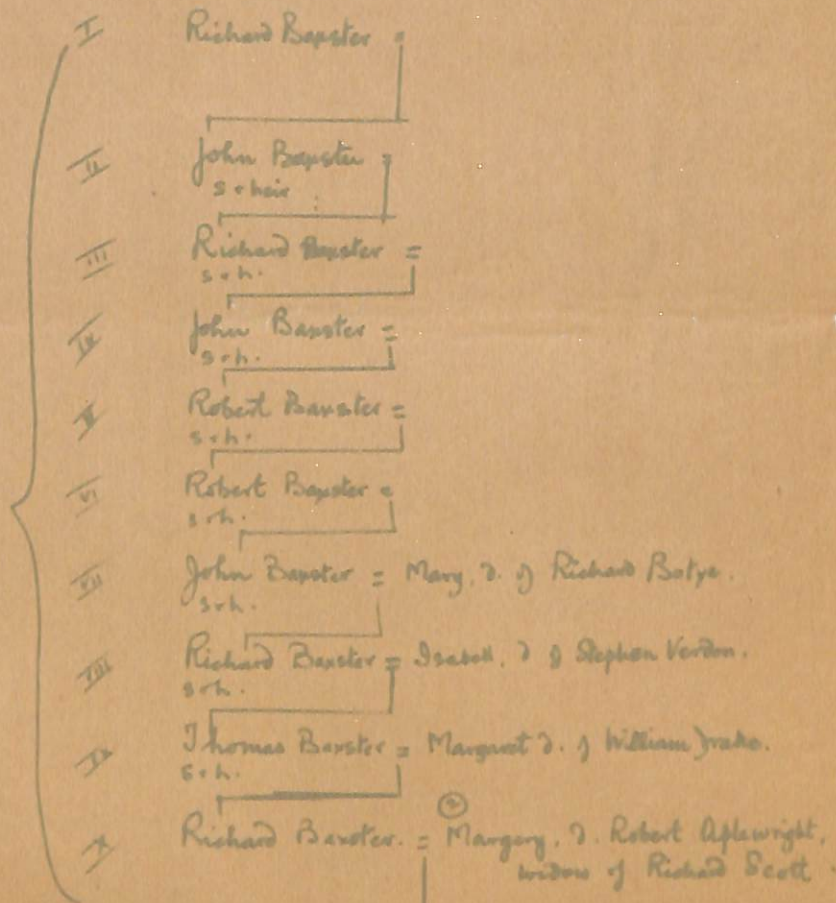 I Richard Baxster =
II John Baxster =
s & heir
III Richard Baxster =
s & h.
IV John Baxster =
s & h.
V Robert Baxster =
s & h.
VI Robert Baxster =
s & h.
VII John Baxster = Mary, d. of Richard Botye.
s & h.
VIII Richard Baxster = Isabell, d of Stephen Verdon.
s & h.
IX Thomas Baxster = Margaret d. of William Drake.
s & h.
②
X Richard Baxster. = Margery, d. Robert Aplewright,
widow of Richard Scott.